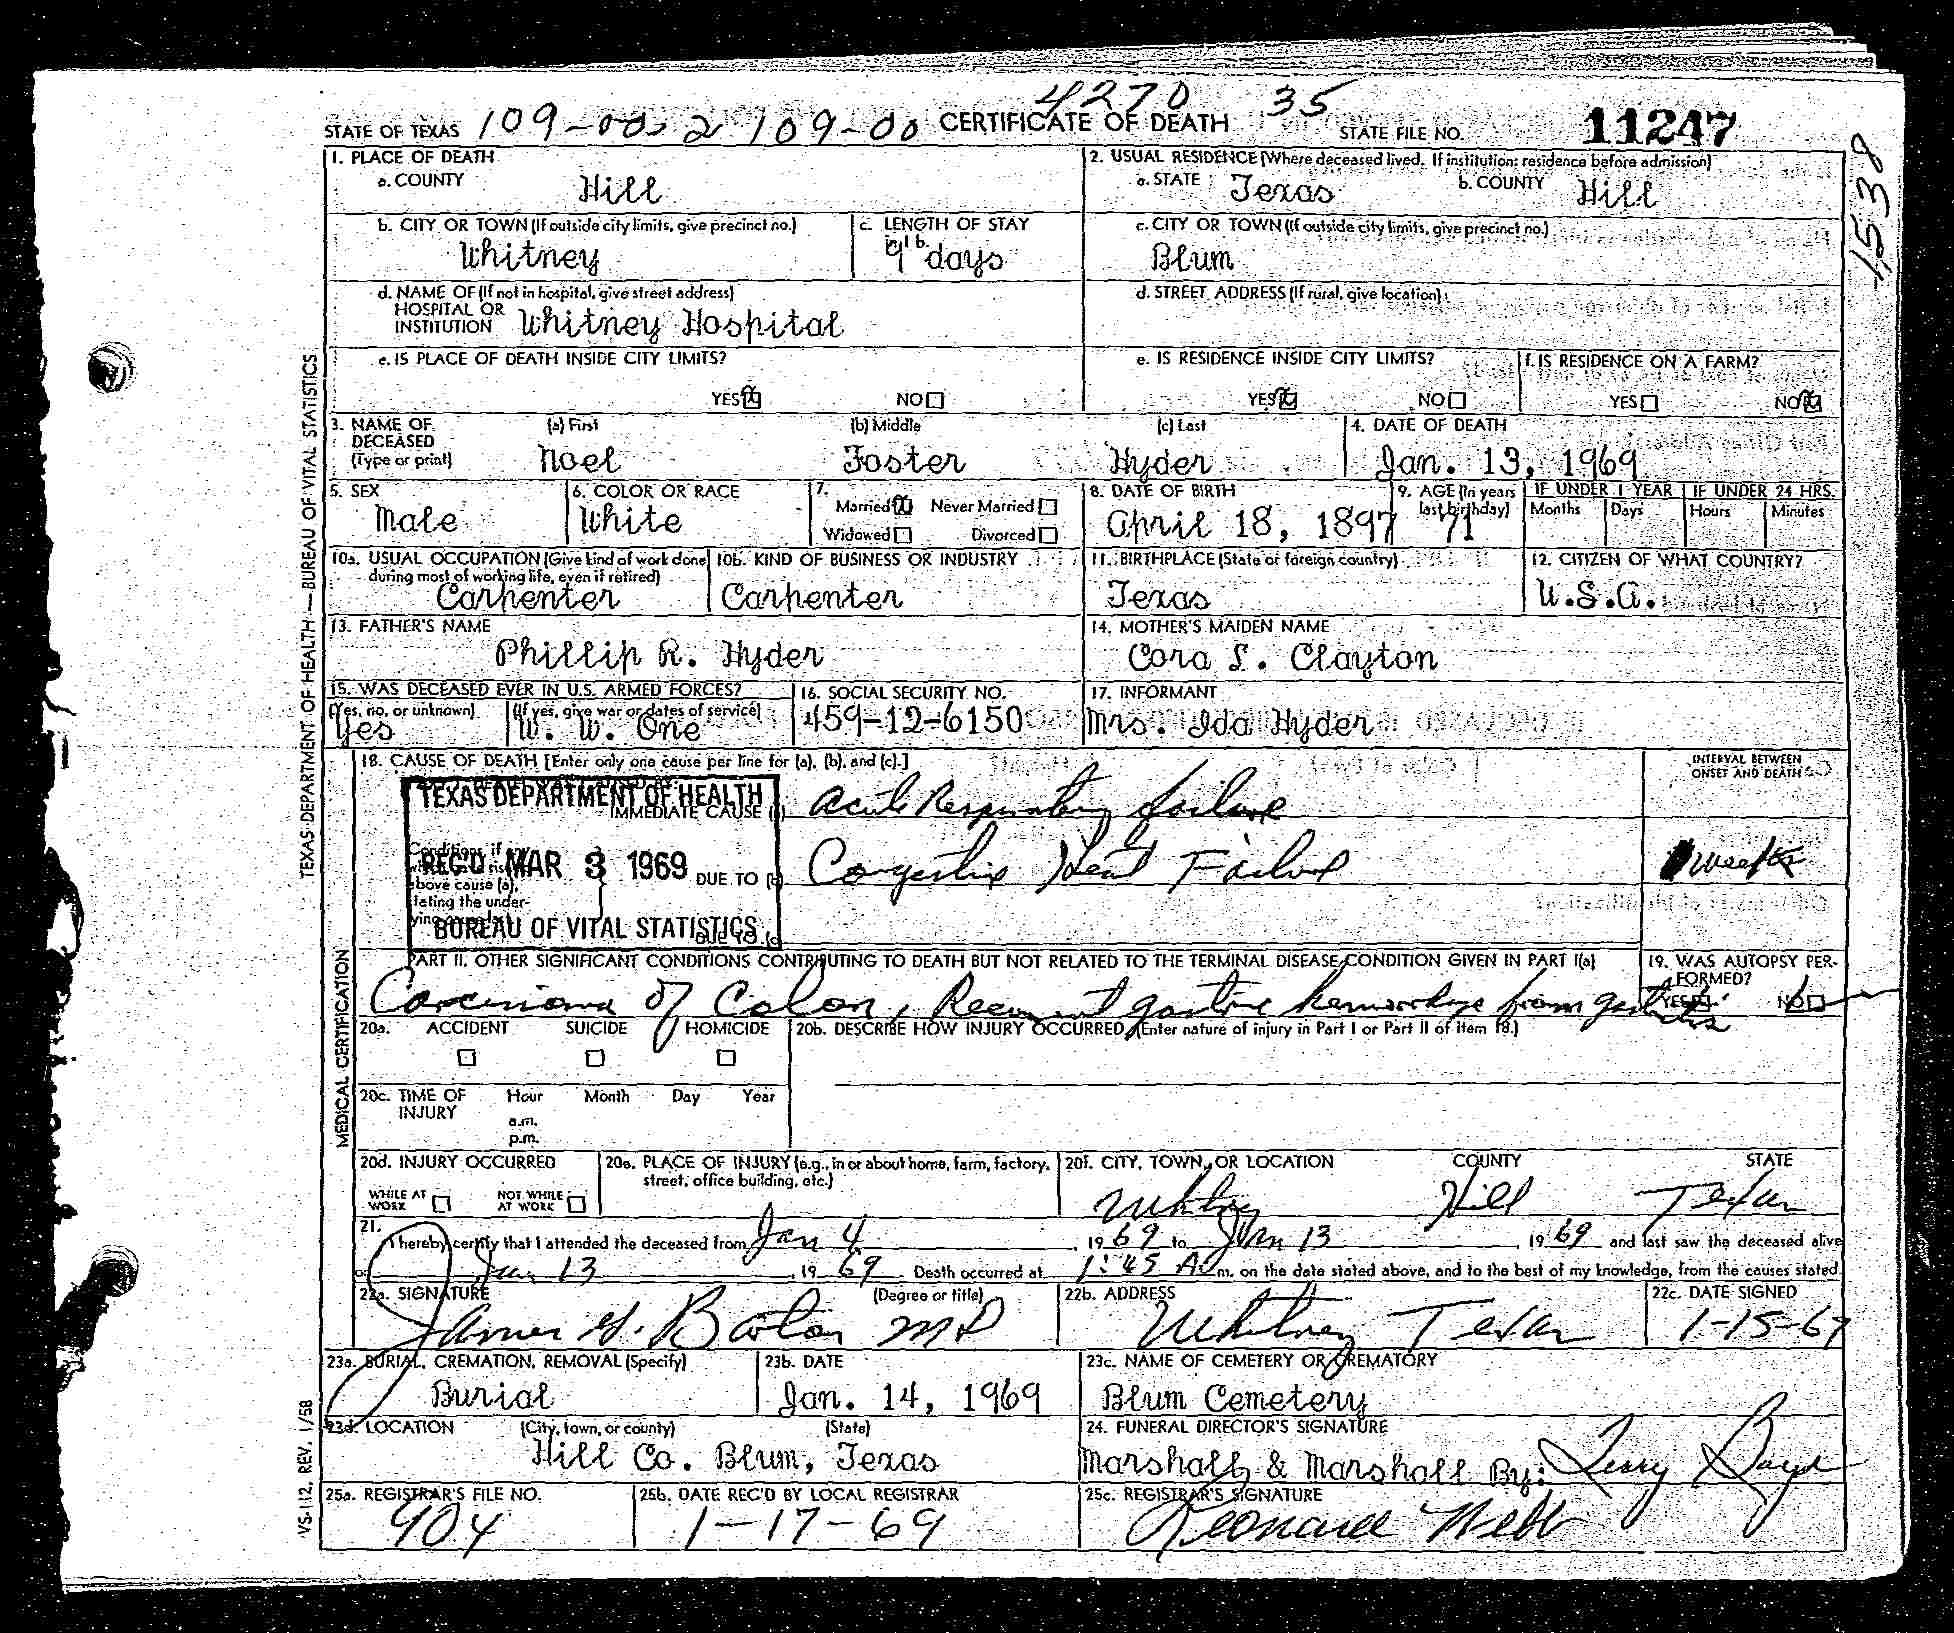 4270 35
STATE OF TEXAS 109-00 2 109-00 CERTIFICATE OF DEATH STATE FILE NO. 11247
1538
1. PLACE OF DEATH
a. COUNTY Hill
2. USUAL RESIDENCE (Where deceased lived. If institution: residence before admission)
a. STATE Texas b. COUNTY Hill
b. CITY OR TOWN (If outside city limits, give precinct no.) Whitney
c. LENGTH OF STAY 1b. 9 days
c. CITY OR TOWN (If outside city limits, give precinct no.) Blum
d. NAME OF (If not in hospital, give street address)
HOSPITAL OR
INSTITUTION Whitney Hospital
d. STREET ADDRESS (If rural, give location)
e. IS PLACE OF DEATH INSIDE CITY LIMITS?
YES NO
e. IS RESIDENCE INSIDE CITY LIMITS?
YES NO
f. IS RESIDENCE ON A FARM?
YES NO
3. NAME OF
DECEASED
(Type or print)
(a) First Noel
(b) Middle Foster
(c) Last Hyder
4. DATE OF DEATH
Jan. 13, 1969
5. SEX
Male
6. COLOR OR RACE
White
7.
Married Never Married
Widowed Divorced
8. DATE OF BIRTH
April 18, 1897
9. AGE (In years
last birthday)
71
IF UNDER 1 YEAR
Months Days
IF UNDER 24 HRS.
Hours Minutes
10a. USUAL OCCUPATION (Give kind of work done
during most of working life, even if retired)
Carpenter
10b. KIND OF BUSINESS OR INDUSTRY
Carpenter
11. BIRTHPLACE (State or foreign country)
Texas
12. CITIZEN OF WHAT COUNTRY?
U.S.A.
13. FATHER'S NAME
Phillip R. Hyder
14. MOTHER'S MAIDEN NAME
Cora S. Clayton
15. WAS DECEASED EVER IN U.S. ARMED FORCES?
(Yes, no, or unknown) (If yes, give war or dates of service)
Yes W. W. One
16. SOCIAL SECURITY NO.
459-12-6150
17. INFORMANT
Mrs. Ida Hyder
18. CAUSE OF DEATH [Enter only one cause per line for (a), (b), and (c).]
INTERVAL BETWEEN
ONSET AND DEATH
TEXAS DEPARTMENT OF HEALTH
IMMEDIATE CAUSE Acute Respiratory failure
Conditions, if any
above cause (a),
stating the under-
REC'D MAR 3 1969
DUE TO (b) Congestive Heart Failure
1 week
BUREAU OF VITAL STATISTICS
DUE TO (c)
PART II. OTHER SIGNIFICANT CONDITIONS CONTRIBUTING TO DEATH BUT NOT RELATED TO THE TERMINAL DISEASE CONDITION GIVEN IN PART I(a)
Carcinoma of Colon, Recurrent gastric hemorrhage from gastritis
19. WAS AUTOPSY PER-
FORMED?
YES NO
20a. ACCIDENT SUICIDE HOMICIDE
20b. DESCRIBE HOW INJURY OCCURRED (Enter nature of injury in Part I or Part II of item 18.)
20c. TIME OF
INJURY
Hour Month Day Year
a.m.
p.m.
20d. INJURY OCCURRED
WHILE AT
WORK
NOT WHILE
AT WORK
20e. PLACE OF INJURY (e.g., in or about home, farm, factory,
street, office building, etc.)
20f. CITY, TOWN, OR LOCATION COUNTY STATE
Whitney Hill Texas
21.
I hereby certify that I attended the deceased from Jan 4, 1969 to Jan 13, 1969 and last saw the deceased alive
on Jan 13, 1969 Death occurred at 1:45 A.m. on the date stated above, and to the best of my knowledge, from the causes stated.
22a. SIGNATURE (Degree or title)
MD
22b. ADDRESS
Whitney Texas
22c. DATE SIGNED
1-15-69
23a. BURIAL, CREMATION, REMOVAL (Specify)
Burial
23b. DATE
Jan. 14, 1969
23c. NAME OF CEMETERY OR CREMATORY
Blum Cemetery
23d. LOCATION (City, town, or county) (State)
Hill Co. Blum, Texas
24. FUNERAL DIRECTOR'S SIGNATURE
Marshall & Marshall By:
25a. REGISTRAR'S FILE NO.
904
25b. DATE REC'D BY LOCAL REGISTRAR
1-17-69
25c. REGISTRAR'S SIGNATURE
Leonard Webb
TEXAS DEPARTMENT OF HEALTH—BUREAU OF VITAL STATISTICS
MEDICAL CERTIFICATION
VS-112, REV. 1/58